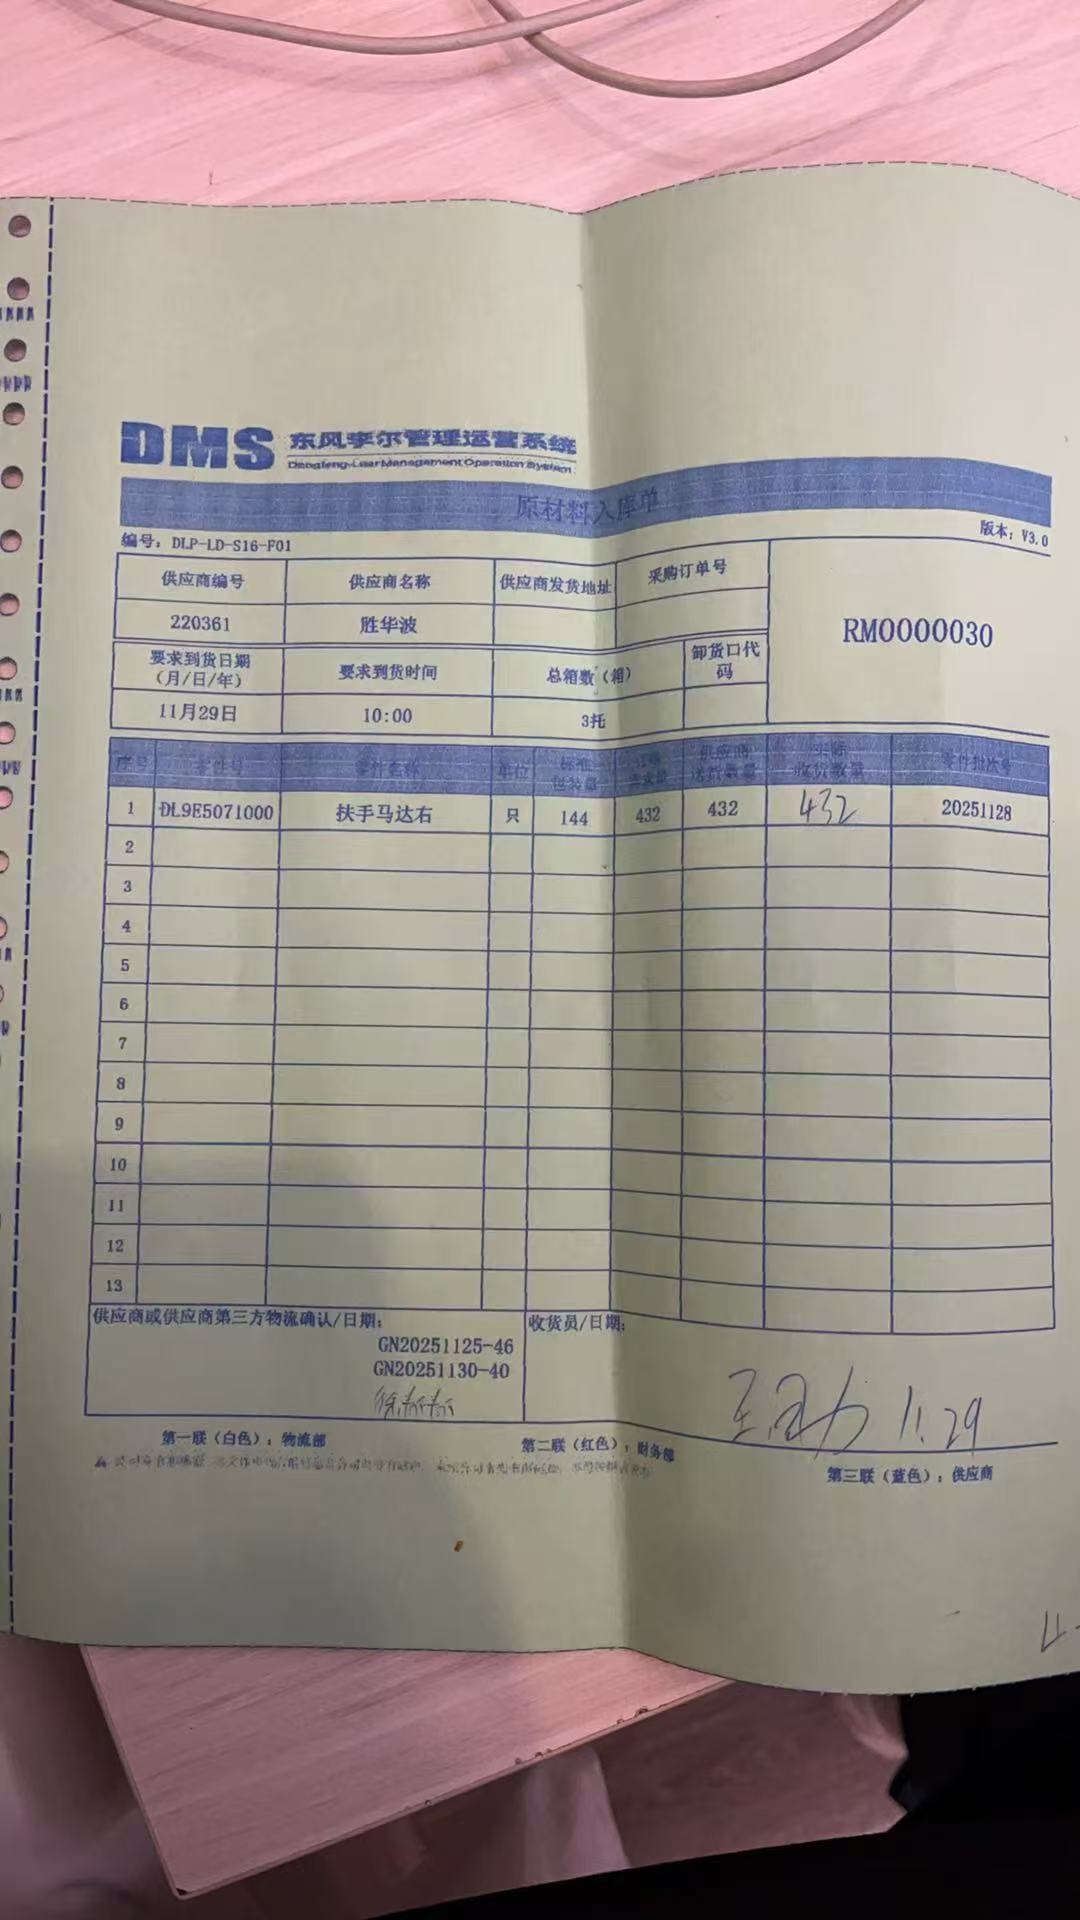 DMS 东风李尔管理运营系统
Dongfeng-Lear Management Operation System
原材料入库单
编号：DLP-LD-S16-F01 版本：V3.0
供应商编号 供应商名称 供应商发货地址 采购订单号
220361 胜华波
RM0000030
要求到货日期（月/日/年） 要求到货时间 总箱数（箱） 卸货口代码
11月29日 10:00 3托
序号 零件号 零件名称 单位 标准包装量 需求量 供应商送货数量 实际收货数量 零件批次号
1 DL9E5071000 扶手马达右 只 144 432 432 432 20251128
2
3
4
5
6
7
8
9
10
11
12
13
供应商或供应商第三方物流确认/日期： 收货员/日期：
GN20251125-46
GN20251130-40
11.29
第一联（白色）：物流部 第二联（红色）：财务部 第三联（蓝色）：供应商